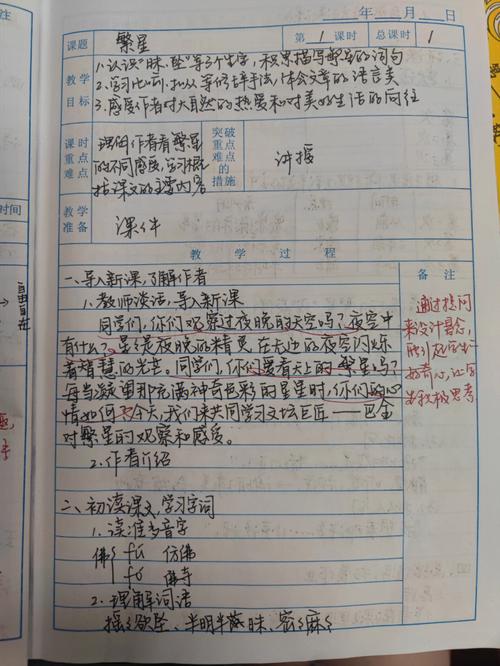 年 月 日
课题 繁星 第 1 课时 总课时 1
教学目标
1.认识"昧、坠"等3个生字,积累描写繁星的词句
2.学习比喻、拟人等修辞手法,体会文章的语言美
3.感受作者对大自然的热爱和对美好生活的向往
课时重点难点
理解作者看繁星
的不同感受,学习概
括课文的主要内容
突破重点难点的措施
讲授
教学准备
课件
教学过程
备注
一、导入新课,了解作者
1.教师谈话,导入新课
同学们,你们观察过夜晚的天空吗?夜空中
有什么?星星是夜晚的精灵,在无边的夜空闪烁
着智慧的光芒。同学们,你们爱看天上的繁星吗?
每当凝望那充满神奇色彩的星星时,你们的心
情如何?今天,我们来共同学习文坛巨匠——巴金
对繁星的观察和感受。
2.作者介绍
二、初读课文,学习字词
1.读准多音字
佛 fú 仿佛
fó 佛寺
2.理解词语
摇摇欲坠、半明半昧、密密麻麻
通过提问
来设计
学生
好奇心,让学
生积极思考
时间
自由自在